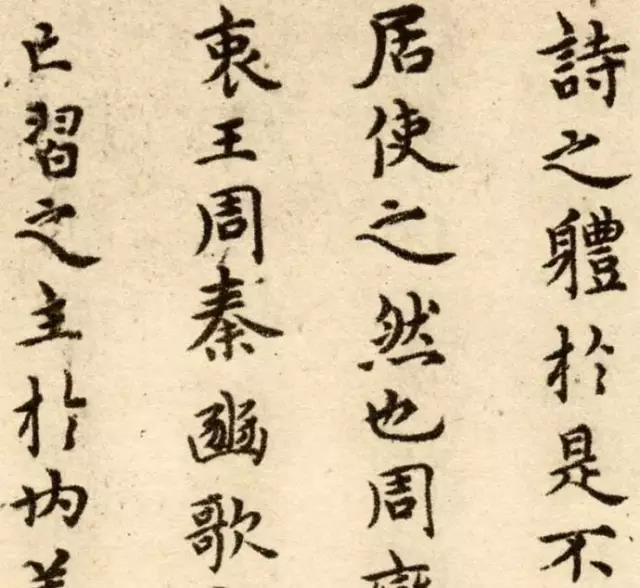 詩之軆於是不
居使之然也周
衷王周秦豳歌
已習之主於